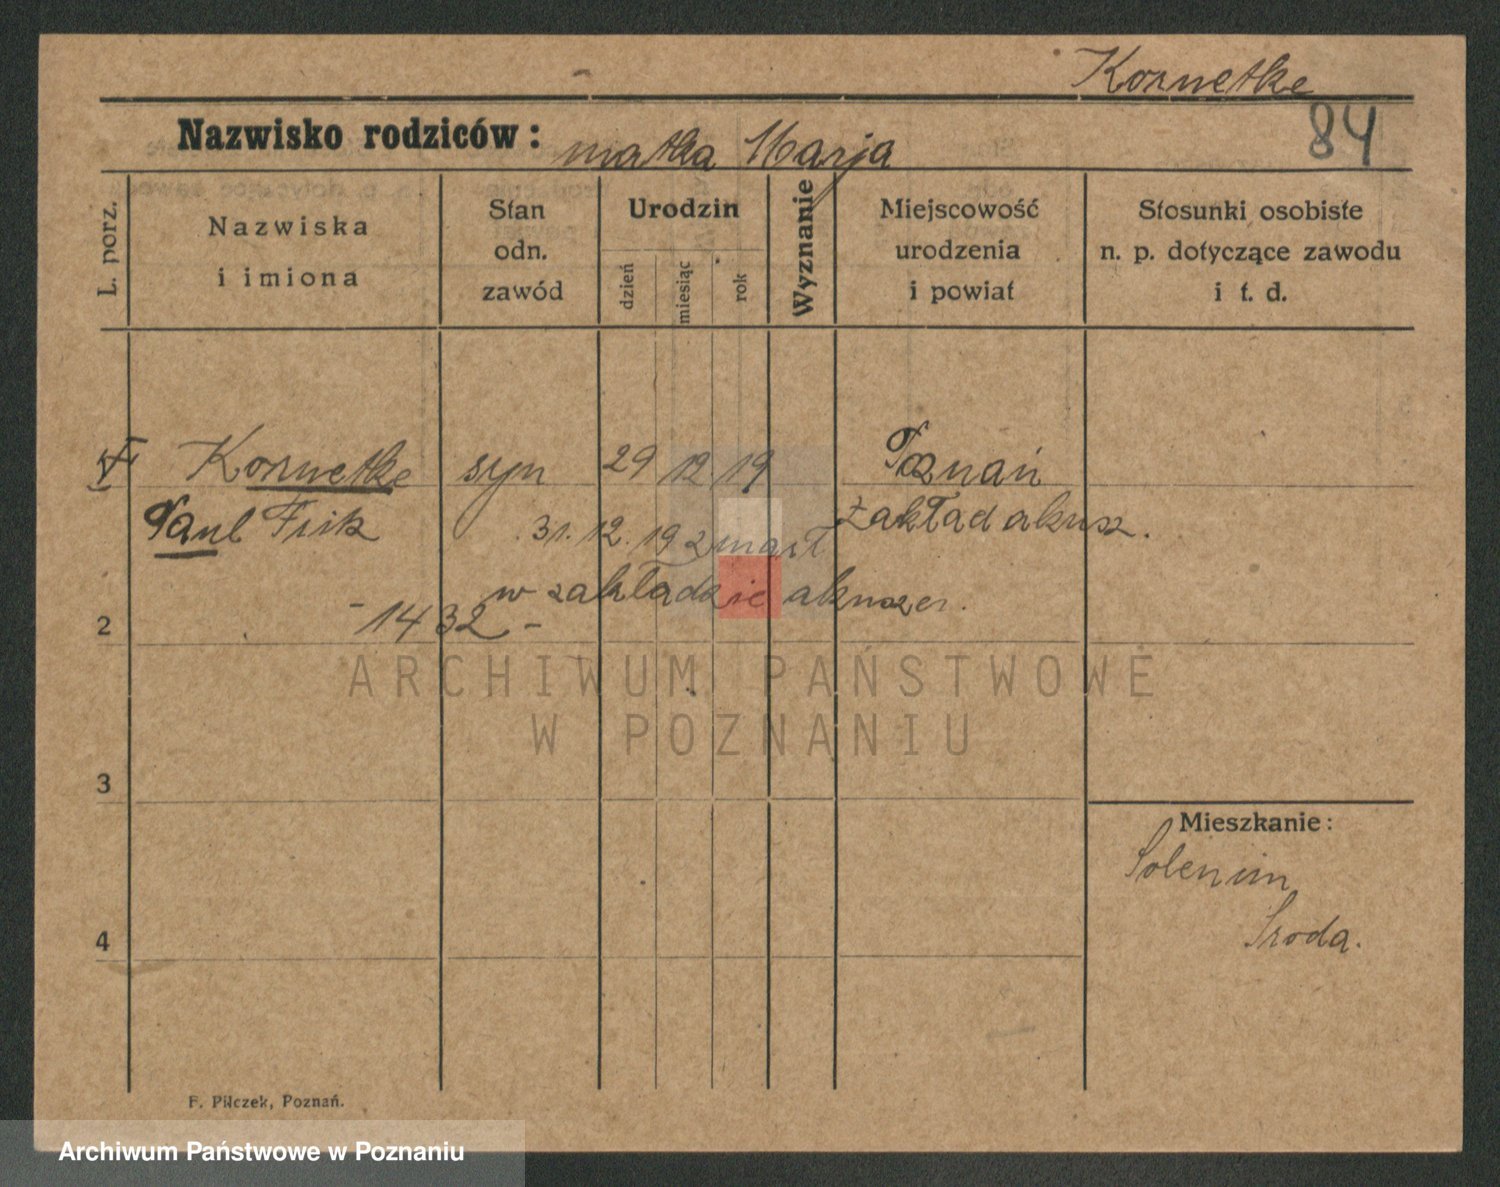 Kornetke
84
Nazwisko rodziców: matka Marja
L. porz.
Nazwiska
i imiona
Stan
odn.
zawód
Urodzin
dzień
miesiąc
rok
Wyznanie
Miejscowość
urodzenia
i powiat
Stosunki osobiste
n. p. dotyczące zawodu
i t. d.
Kornetke syn 29 12 19 Poznań
Paul Frik 31. 12. 19 zmarł zakład akusz.
w zakładzie akuszer.
2 - 1432 -
ARCHIWUM PAŃSTWOWE
W POZNANIU
3
Mieszkanie:
Solenim
4 Sroda.
F. Pilczek, Poznań.
Archiwum Państwowe w Poznaniu